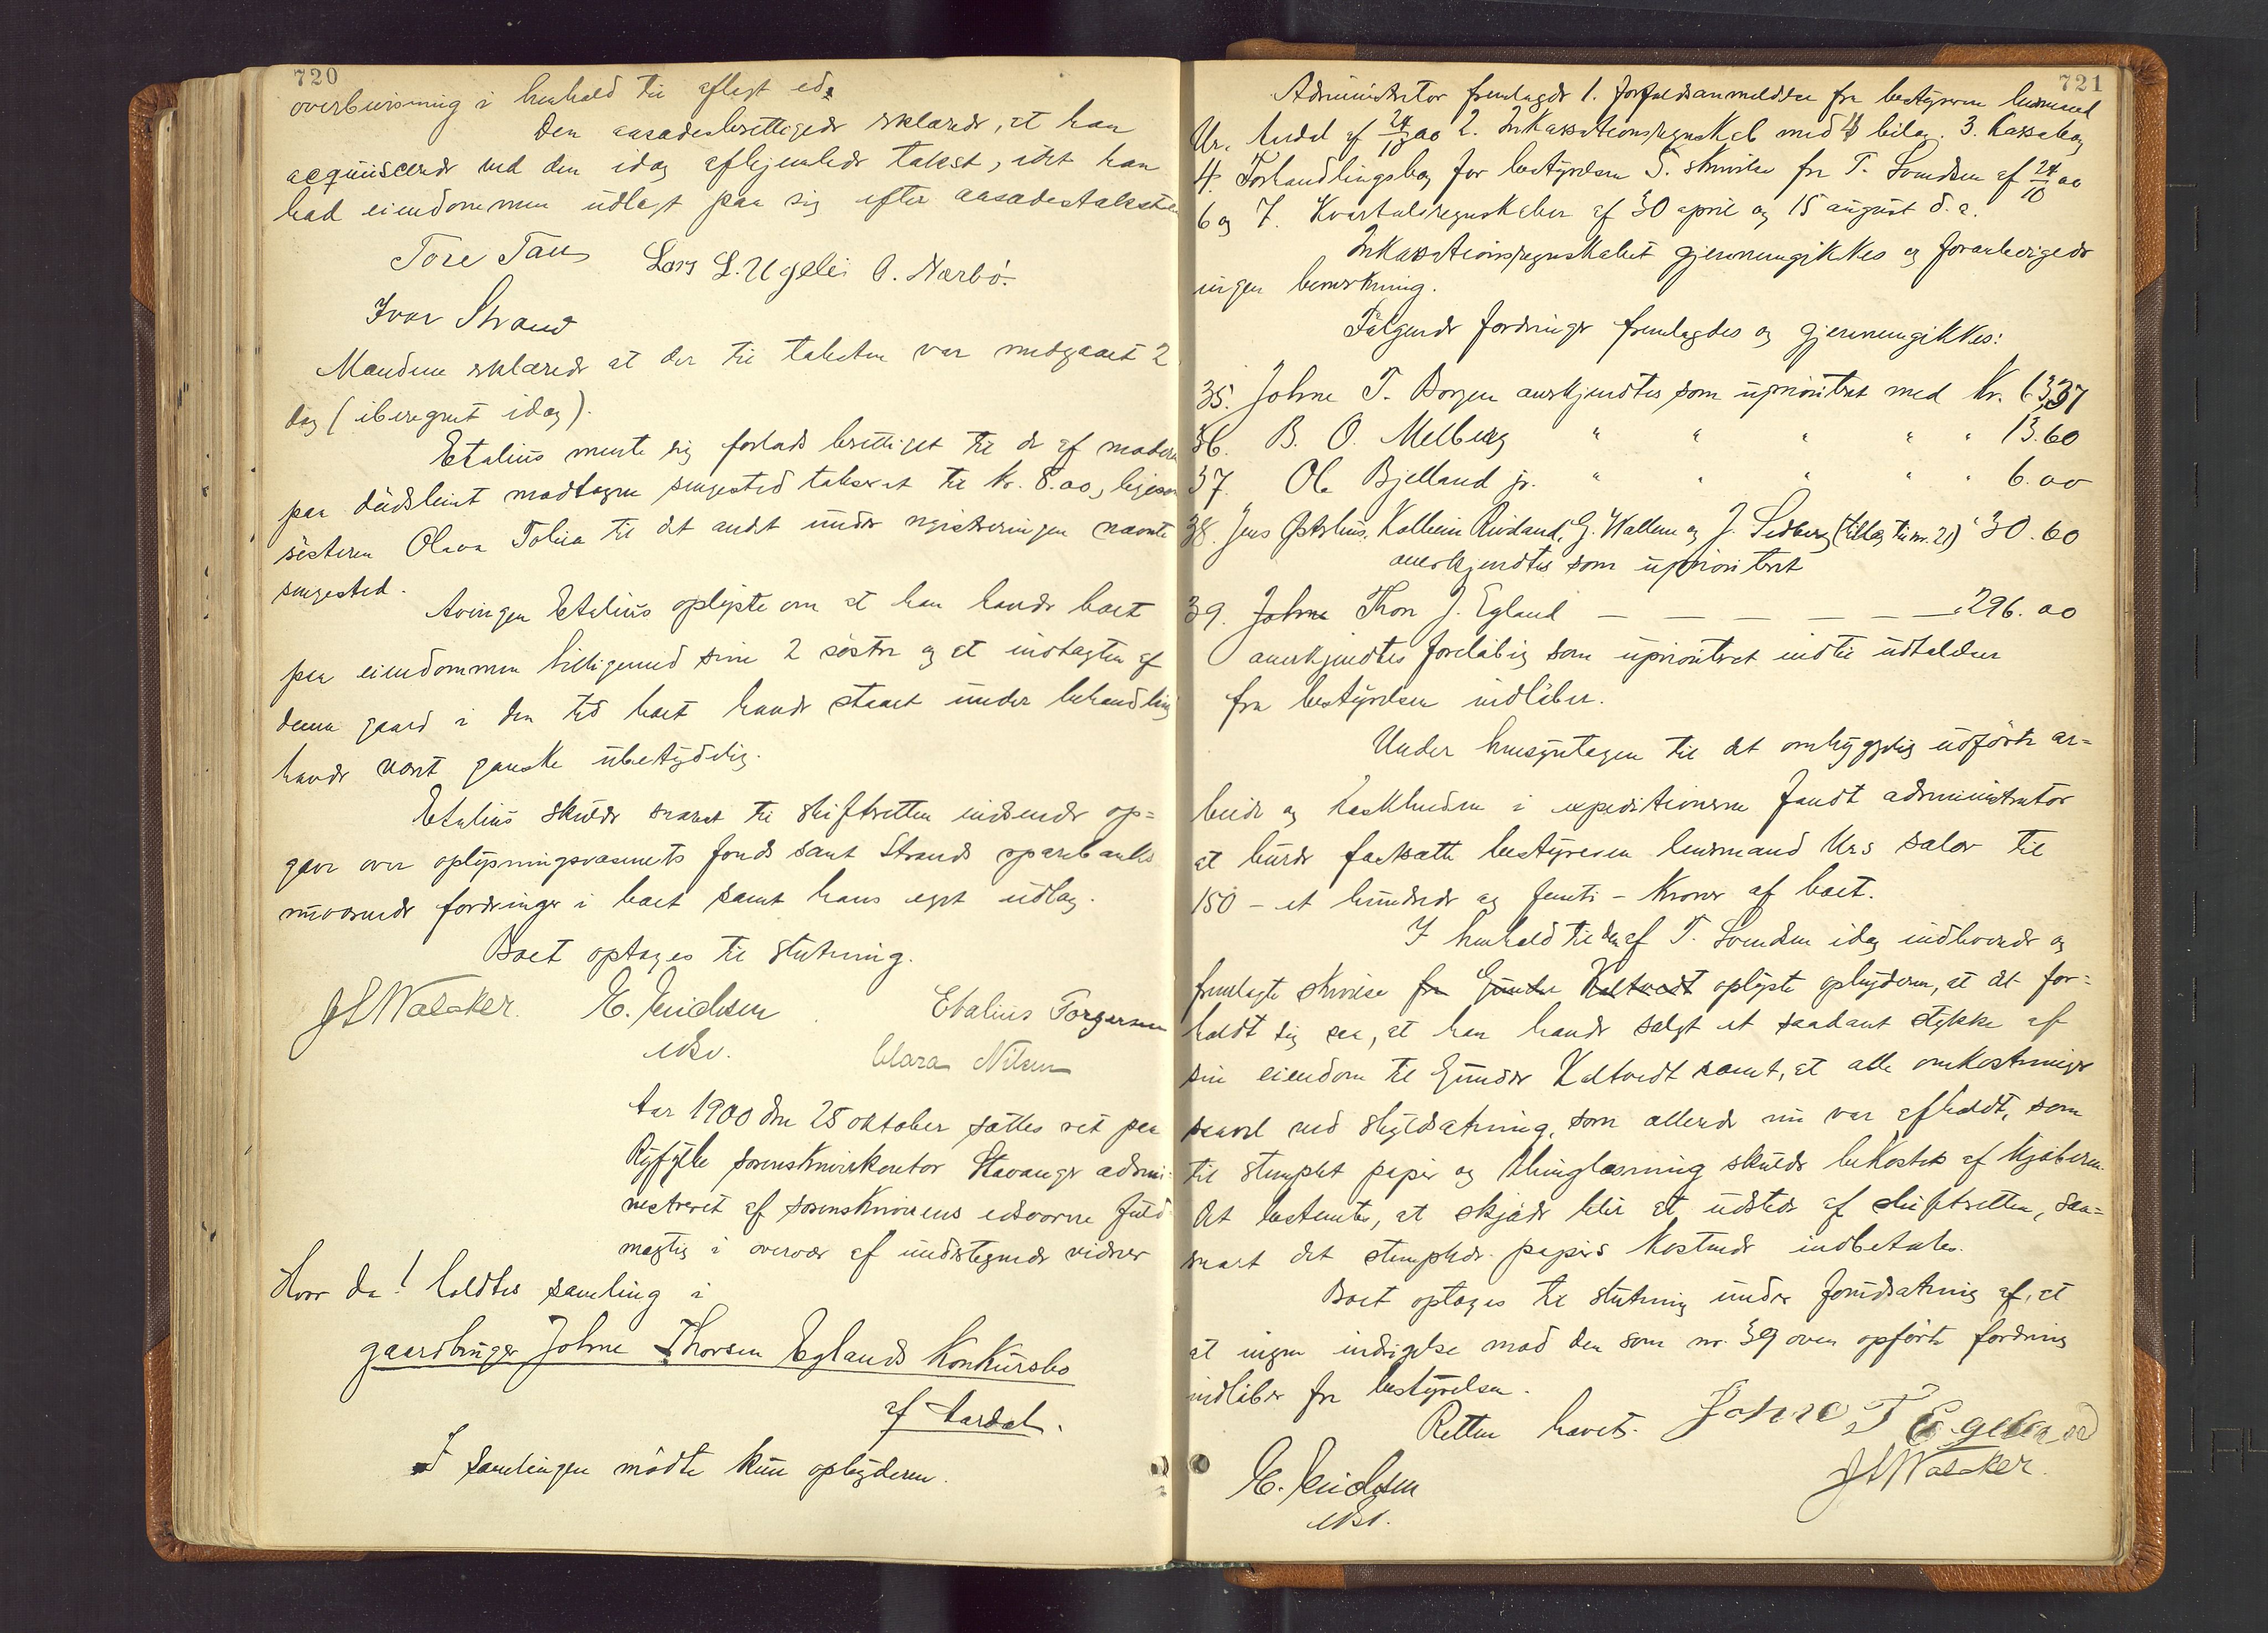 720
overbevisning i henhold til aflagt ed.
Den aasædesberettigede erklærede, at han
acquiscerede ved den idag afhjemlede takst, idet han
bad eiendommen udlagt paa sig efter aasædestaksten
Tore Tau Lars L. Ugelei O. Nærbö.
Ivar Strand
Mændene erklærede at der til taksten var medgaaet 2
dag (iberegnet idag).
Etalius mente sig forlods berettiget til de af moderen
paa dödsleiet modtagne sengested takseret til Kr. 8.00, ligesom
sösteren Olava Tolina til det andet under registreringen nævnte
sengested.
Arvingen Etalius oplyste om at han havde boet
paa eiendommen tilligemed sine 2 söstre og at indtægten af
denne gaard i den tid boet havde staaet under behandling
havde været ganske ubetydelig.
Etalius skulde snarest til skifteretten indsende op=
gave over oplysningsvæsenets fonds samt Strands sparebanks
nuværende fordringer i boet samt hans eget udlæg.
Boet optages til slutning.
J S Walaker. E. Erichsen Etalius Torgersen
edsv. Clara Nilsen
Aar 1900 den 25 oktober sattes ret paa
Ryfylke sorenskriverkontor Stavanger admi-
nistreret af sorenskriverens edsvorne fuld-
mægtig i overvær af undertegnede vidner
Hvor da! holdtes samling i
gaardbruger Johne Thorsen Eglands Konkursbo
af Aardal.
I samlingen mödte kun opbyderen.
721
Administrator fremlagde 1. forfaldsanmeldelse fra bestyreren lensmand
Ur, Aardal af 24/10 00 2. Inkassationsregnskab med 4 bilag. 3. Kassebog
4. Forhandlingsbog for bestyrelsen 5. skrivelse fra T. Svendsen af 24/10 00
6 og 7. Kvartalsregnskaber af 30 april og 15 august d. a.
Inkassationsregnskabet gjennemgikkes og foranledigede
ingen bemerkning.
Fölgende fordringer fremlagdes og gjennemgikkes:
35. Johne T. Borgen anerkjendtes som uprioritret med Kr. 63,37
36. B. O. Melberg " " " " " 13.60
37. Ole Bjelland jr. " " " " " 6.00
38. Jens Östrhus, Kolbein Rivdand, G. Wallem og J. Sedberg (tillæg til nr. 21) " 30.60
anerkjendtes som uprioritret
39. Johne Thore J. Egland — — — — — — " 296.00
anerkjendtes forelöbig som uprioritret indtil udtalelser
fra bestyrelsen indlöber.
Under hensyntagen til det omhyggelig udförte ar=
beide og raskheden i expeditionerne fandt administrator
at burde fastsætte bestyreren lensmand Urs salær til
150 – et hundrede og femti – Kroner af boet.
I henhold til den af T. Svendsen idag indleverede og
fremlagte skrivelse fra Gunder Kaltvedt oplyste opbyderen, at det for=
holdt sig saa, at han havde solgt et saadant stykke af
sin eiendom til Gunder Kaltvedt samt, at alle omkostninger
saavel ved skyldsætning, som allerede nu var afholdt, som
til stemplet papir og thinglæsning skulde bekostes af kjöberen.
Det bestemtes, at skjöde blir at udstede af skifteretten, saa=
snart det stemplede papirs kostende indbetales.
Boet optages til slutning under forudsætning af, at
at ingen indsigelse mod den som nr. 39 oven opförte fordring
indlöber fra bestyrelsen.
Retten hævet. Johne T Egeland
E. Erichsen J S Walaker.
edsv.